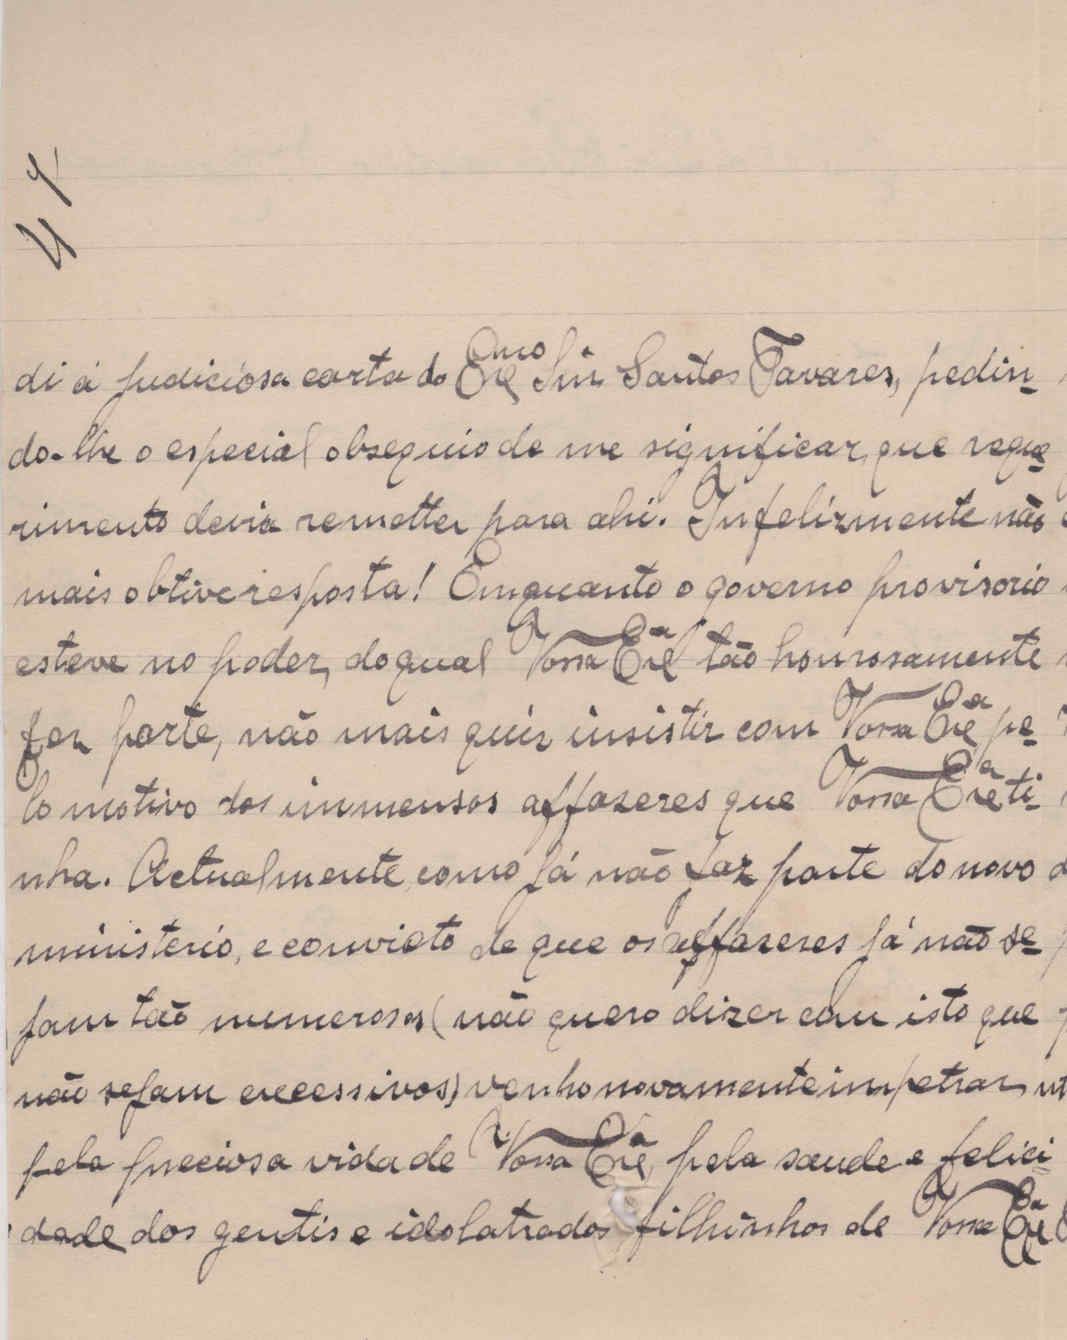 41
di á judiciosa carta do Exmo Snr Santos Tavares, pedin-
do-lhe o especial obsequio de me significar, que reque-
rimento devia remetter para ahi. Infelizmente não
mais obtive resposta! Emquanto o governo provisorio
esteve no poder, do qual Vossa Exª tão honrosamente
fez parte, não mais quiz insistir com Vossa Exª pe-
lo motivo dos immensos affazeres que Vossa Exª ti-
nha. Actualmente, como já não faz parte do novo
ministerio, e convicto de que os affazeres já não se-
jam tão numerosos (não quero dizer com isto que
não sejam excessivos) venho novamente impetrar,
pela preciosa vida de Vossa Exª, pela saude e felici
dade dos gentis e idolatrados filhinhos de Vossa Exª